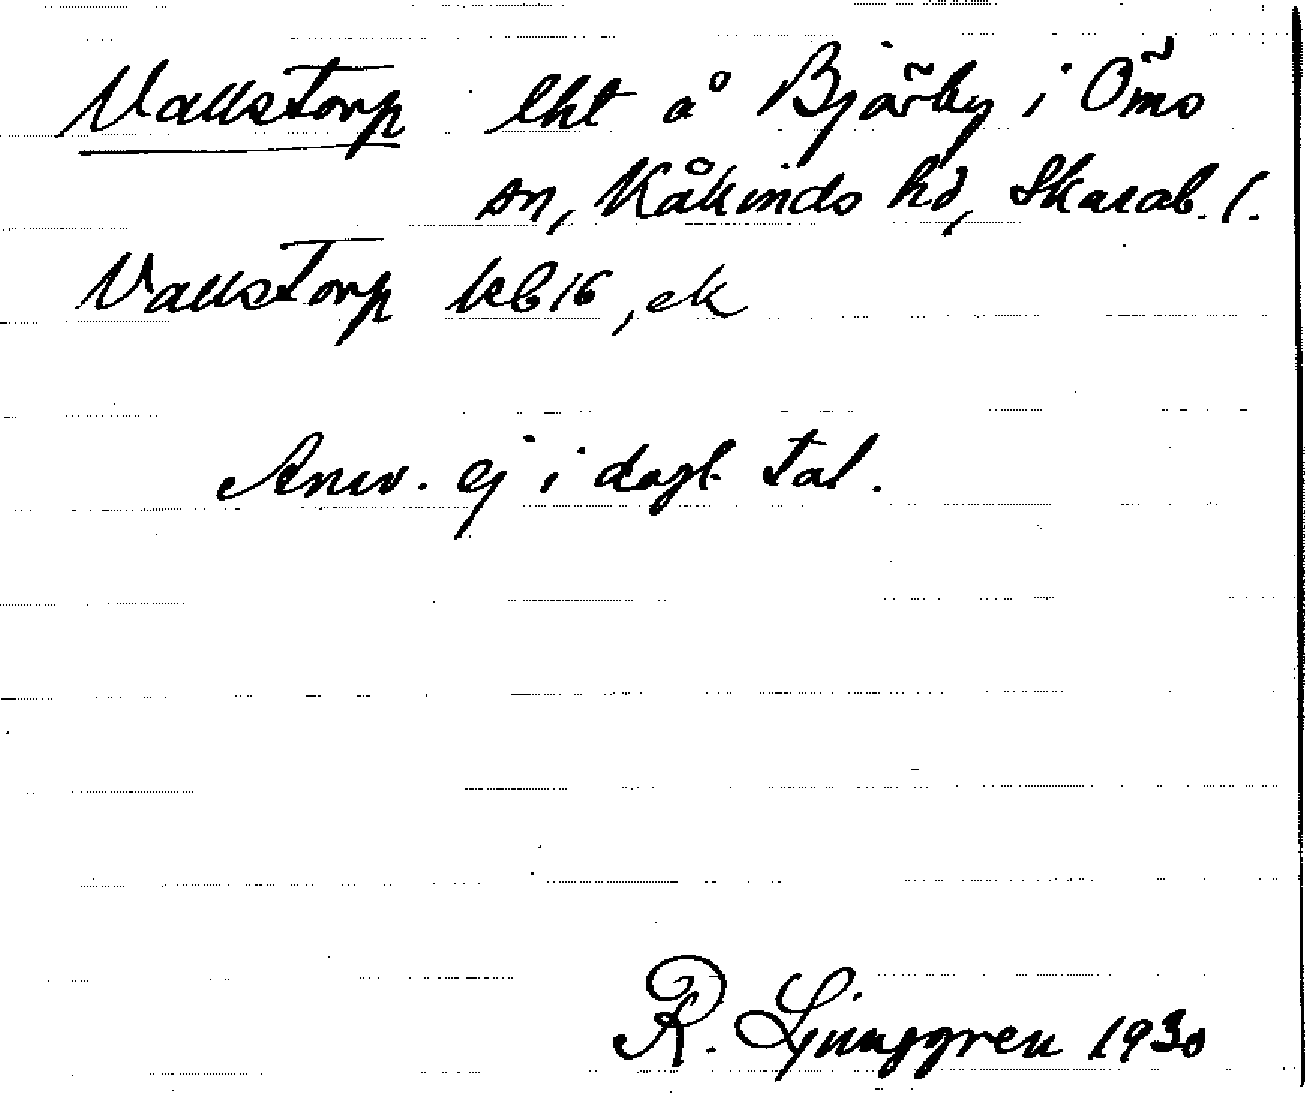 Vallstorp lht å Bjärby i Ömo
sn, Kåkinds hd, Skarab. l.
Vallstorp kb 16, ek
Anv. ej i dagl. tal.
R. Ljunggren 1930